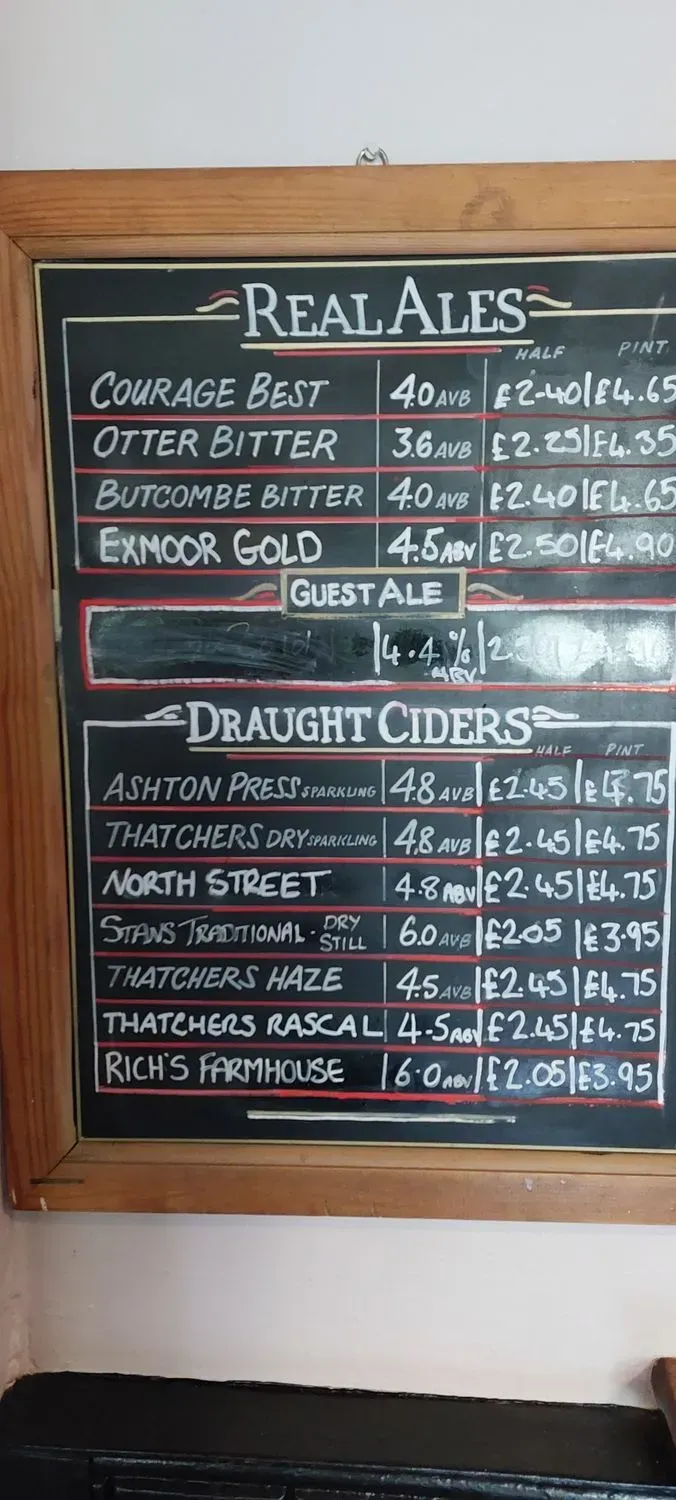 REAL ALES
HALF PINT
COURAGE BEST 4.0 AVB £2.40 £4.65
OTTER BITTER 3.6 AVB £2.25 £4.35
BUTCOMBE BITTER 4.0 AVB £2.40 £4.65
EXMOOR GOLD 4.5 ABV £2.50 £4.90
GUEST ALE
4.4% ABV
DRAUGHT CIDERS
HALF PINT
ASHTON PRESS SPARKLING 4.8 AVB £2.45 £4.75
THATCHERS DRY SPARKLING 4.8 AVB £2.45 £4.75
NORTH STREET 4.8 ABV £2.45 £4.75
STANS TRADITIONAL - DRY STILL 6.0 AVB £2.05 £3.95
THATCHERS HAZE 4.5 AVB £2.45 £4.75
THATCHERS RASCAL 4.5 ABV £2.45 £4.75
RICH'S FARMHOUSE 6.0 ABV £2.05 £3.95